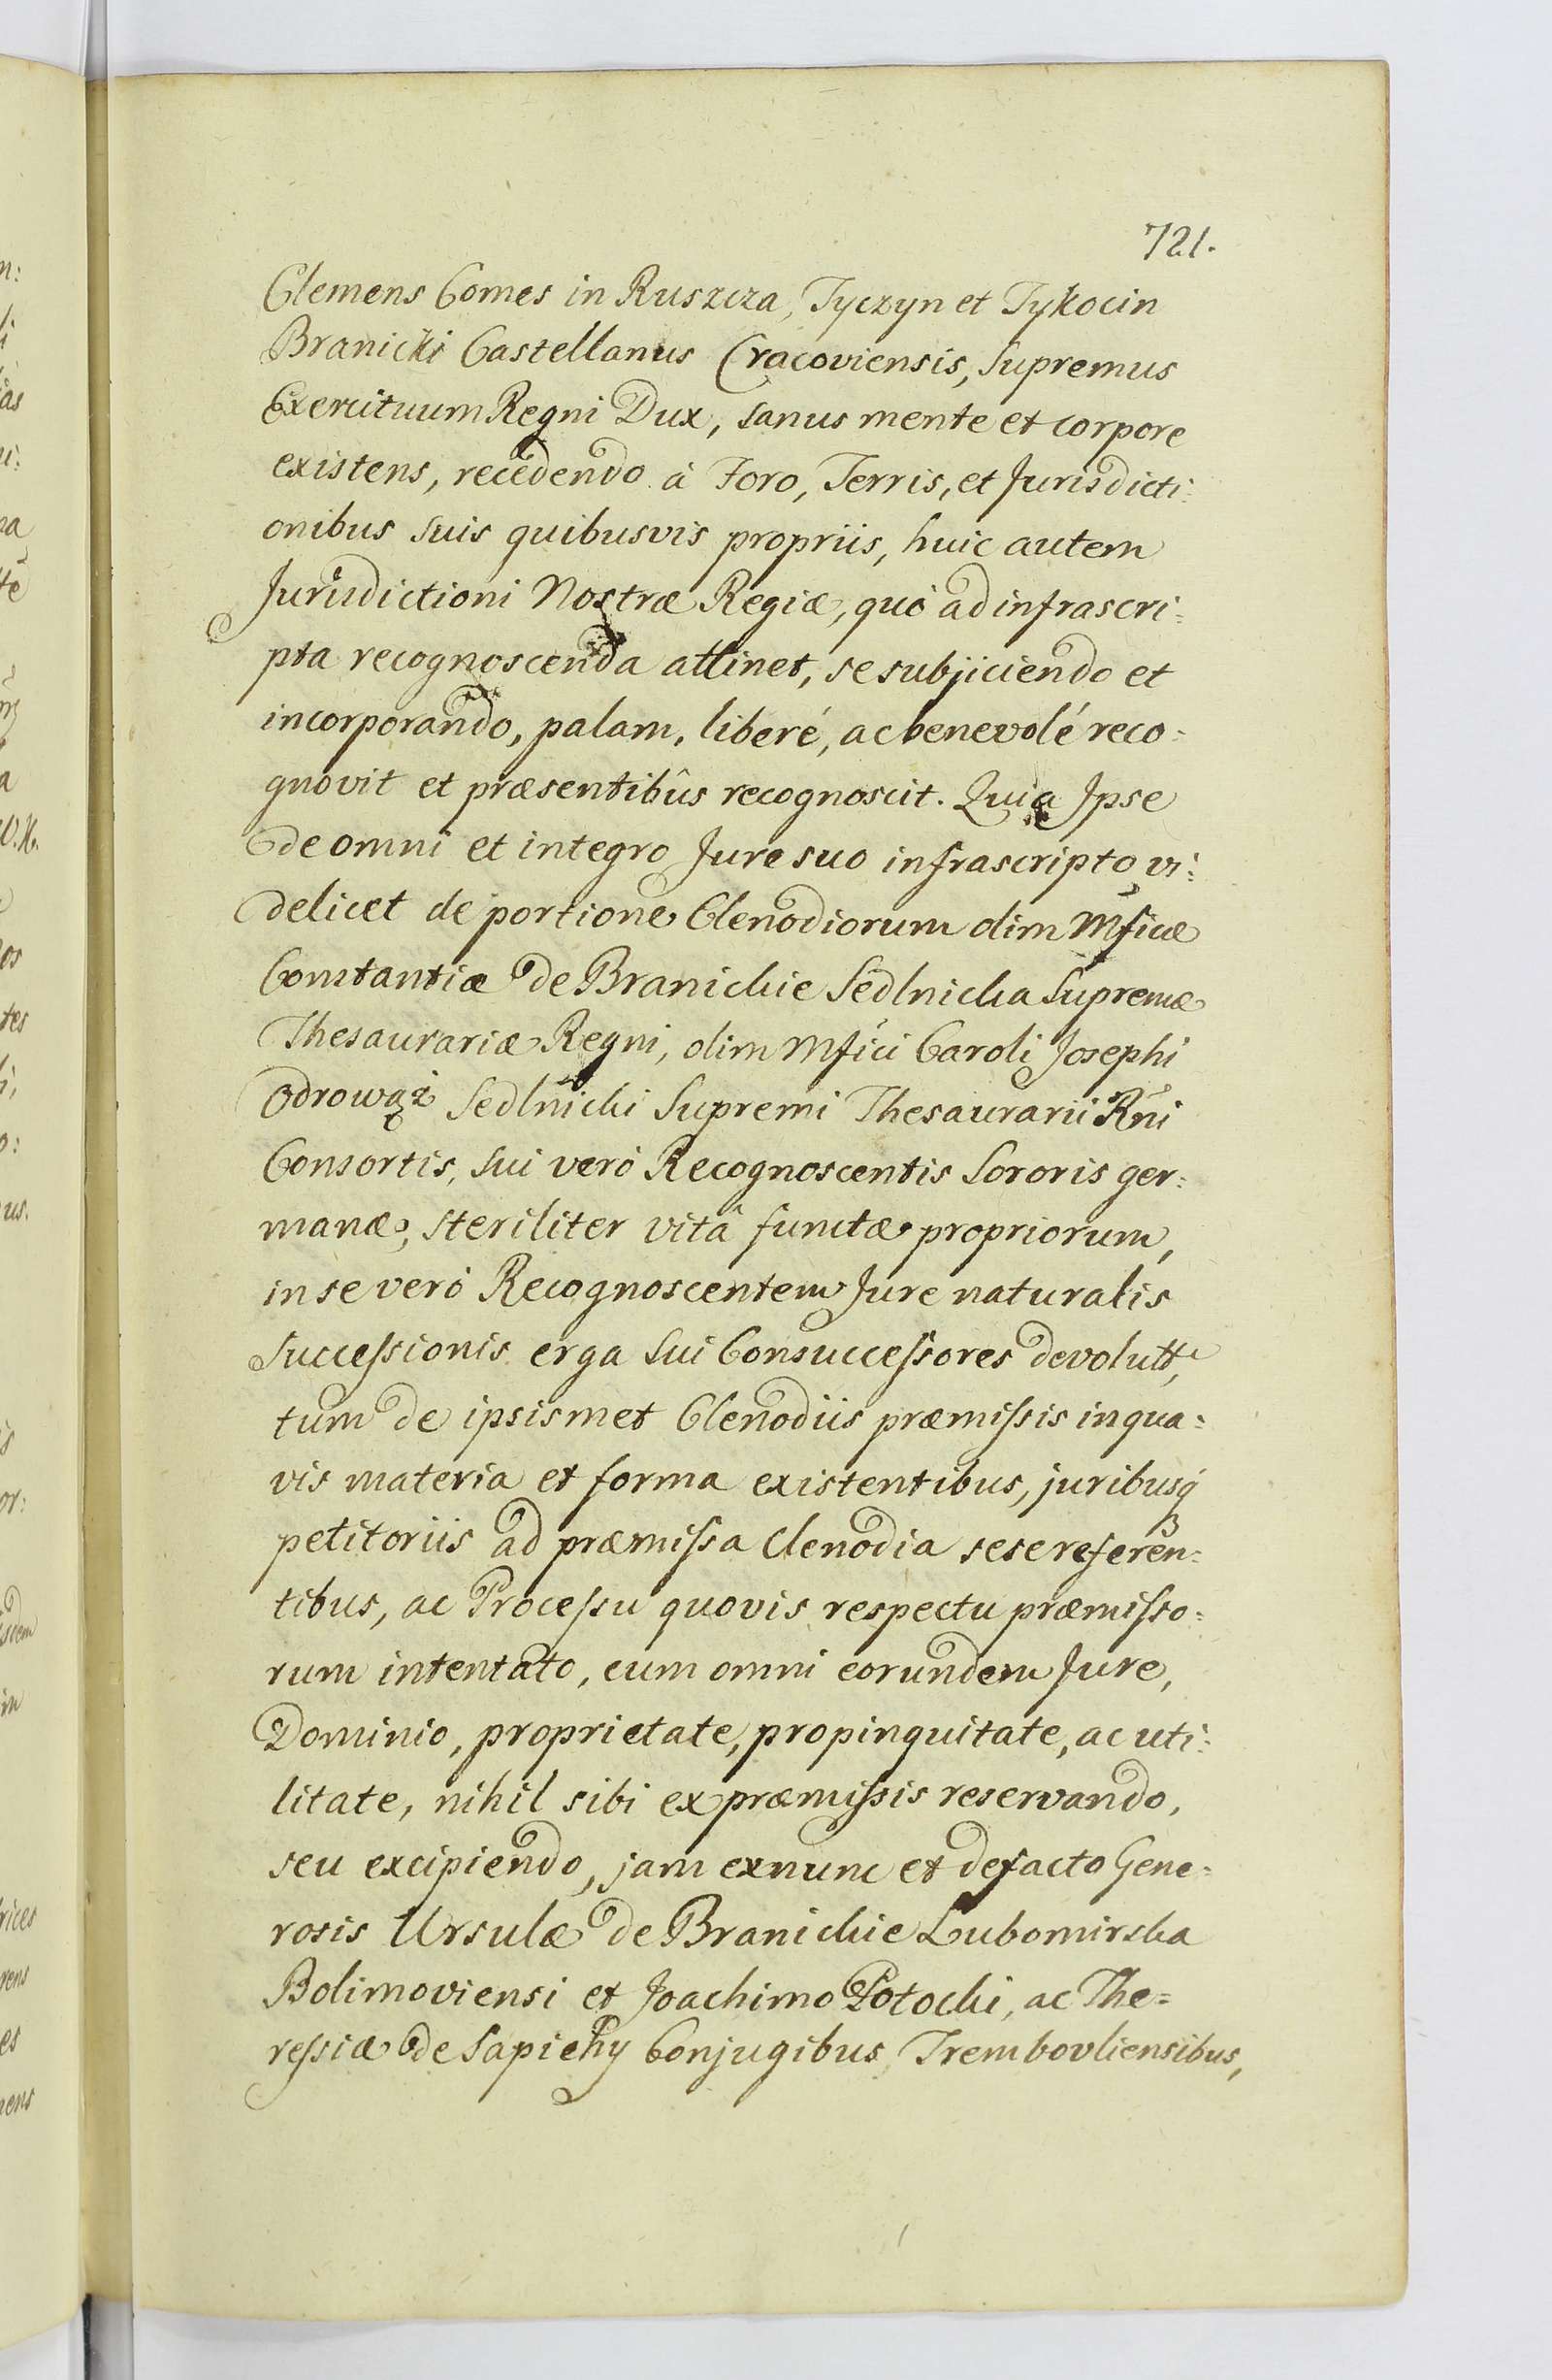 721.
Clemens Comes in Ruszcza, Tyczyn et Tykocin
Branicki Castellanus Cracoviensis, Supremus
Exercituum Regni Dux, sanus mente et corpore
existens, recedendo à Foro, Terris, et Jurisdicti:
onibus suis quibusvis propriis, huic autem
Jurisdictioni Nostræ Regiæ, quò ad infrascri:
pta recognoscenda attinet, se subjiciendo et
incorporando, palam, liberé, ac benevolé reco:
gnovit et præsentibûs recognoscit. Quia Jpse
de omni et integro Jure suo infrascripto vi:
delicet de portione Clenodiorum olim Mficæ
Constantiæ de Branickie Sedlnicka Supremæ
Thesaurariæ Regni, olim Mfici Caroli Josephi
Odrowąż Sedlnicki Supremi Thesaurarii Rni
Consortis, sui verò Recognoscentis Sororis ger:
manæ, steriliter vitâ functæ propriorum,
in se verò Recognoscentem Jure naturalis
Successionis erga sui Consuccessores devolutt,
tum de ipsismet Clenodiis præmissis in qua:
vis materia et forma existentibus, juribusq́
petitoriis ad præmissa Clenodia sese referen:
tibus, ac Processu quovis respectu præmisso:
rum intentato, cum omni eorundem Jure,
Dominio, proprietate, propinquitate, ac uti:
litate, nihil sibi ex præmissis reservando,
seu excipiendo, jam exnunc et defacto Gene:
rosis Ursulæ de Branickie Lubomirska
Bolimoviensi et Joachimo Potocki, ac The=
ressiæ de Sapiehy Conjugibus Trembovliensibus,